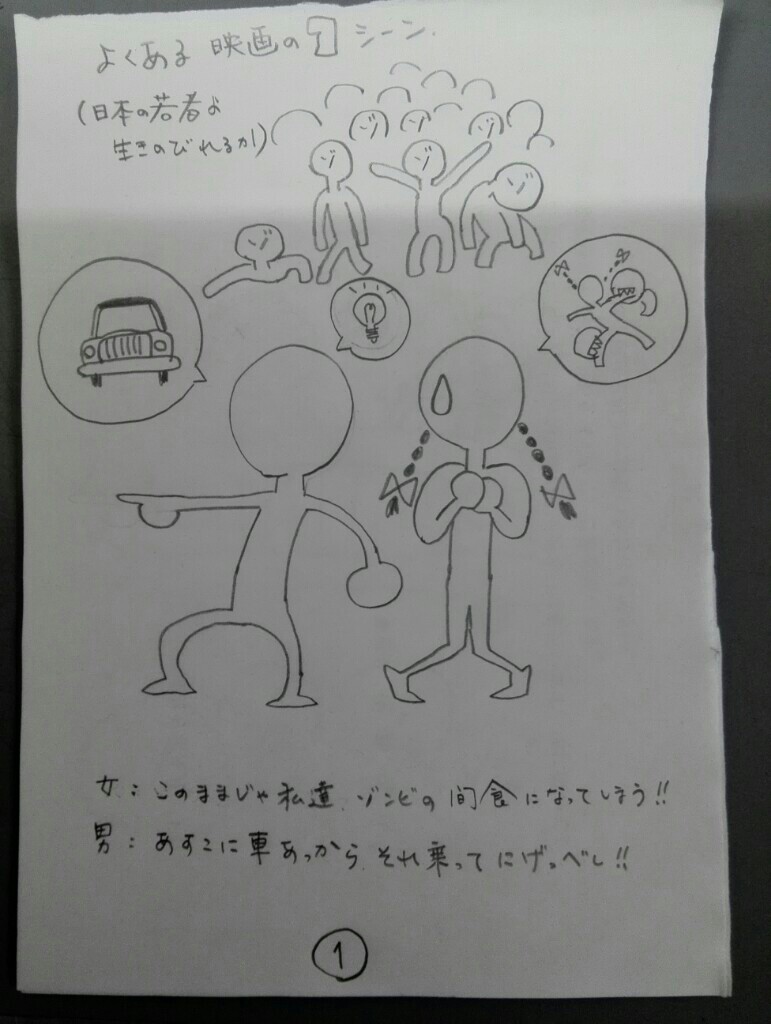 よくある 映画の1シーン.
(日本の若者よ
生きのびれるか)
ゾ
ゾ
ゾ
ゾ
ゾ
ゾ
ゾ
女:このままじゃ私達、ゾンビの間食になってしまう!!
男:あすこに車あっから、それ乗ってにげっべし!!
1